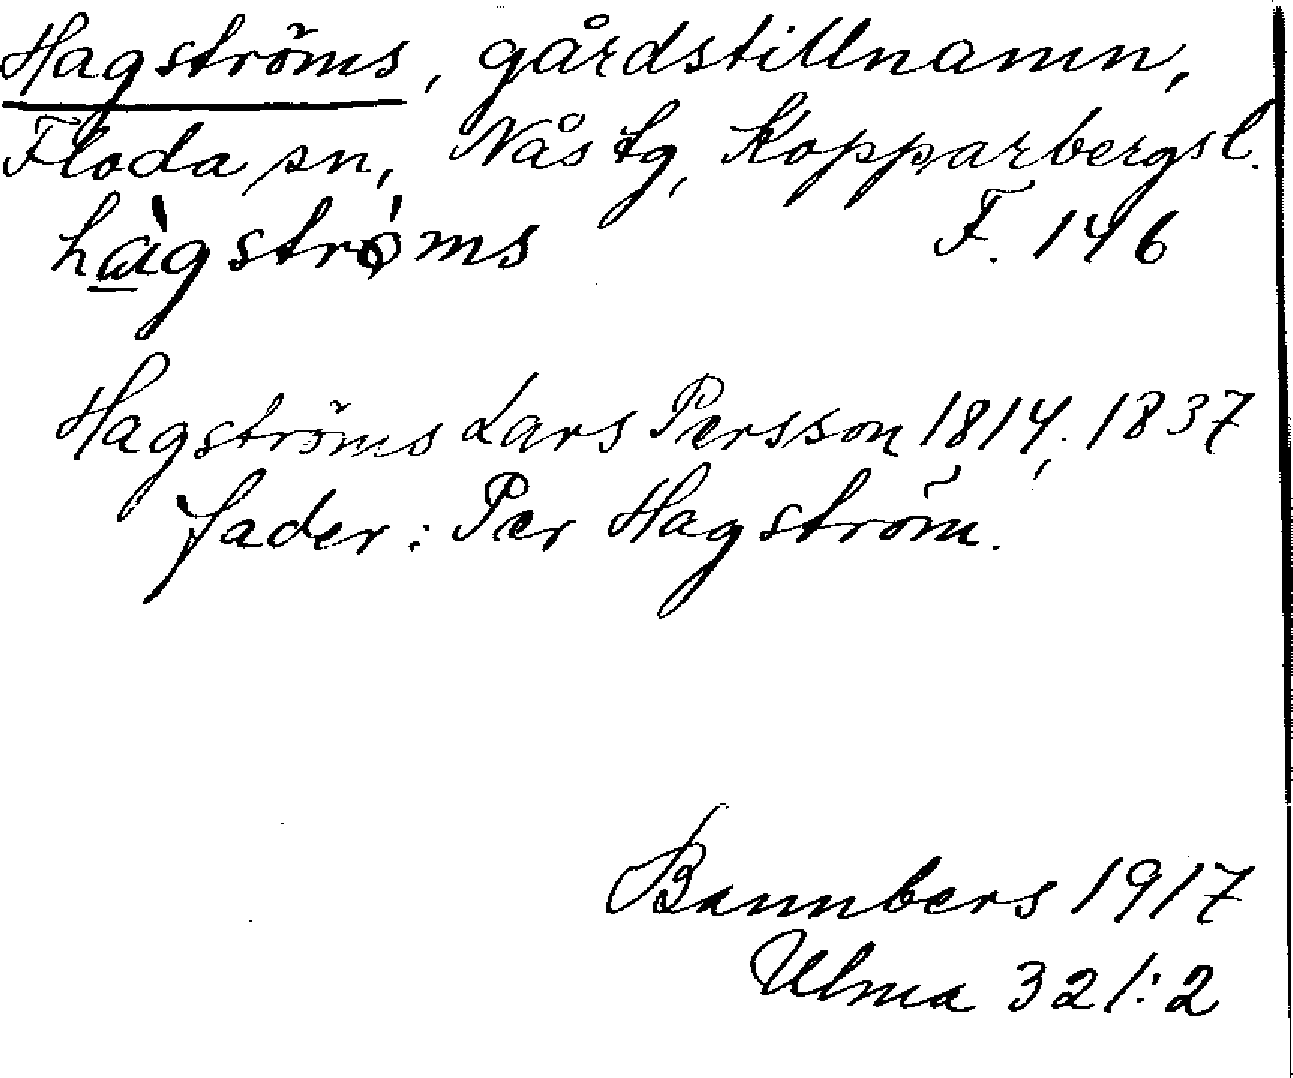 Hagströms, gårdstillnamn,
Floda sn, Nås tg, Kopparbergs l.
hàgstrǫ̈ms F. 146
Hagströms Lars Persson 1814, 1837
fader: Per Hagström.
Bannbers 1917
Ulma 321:2